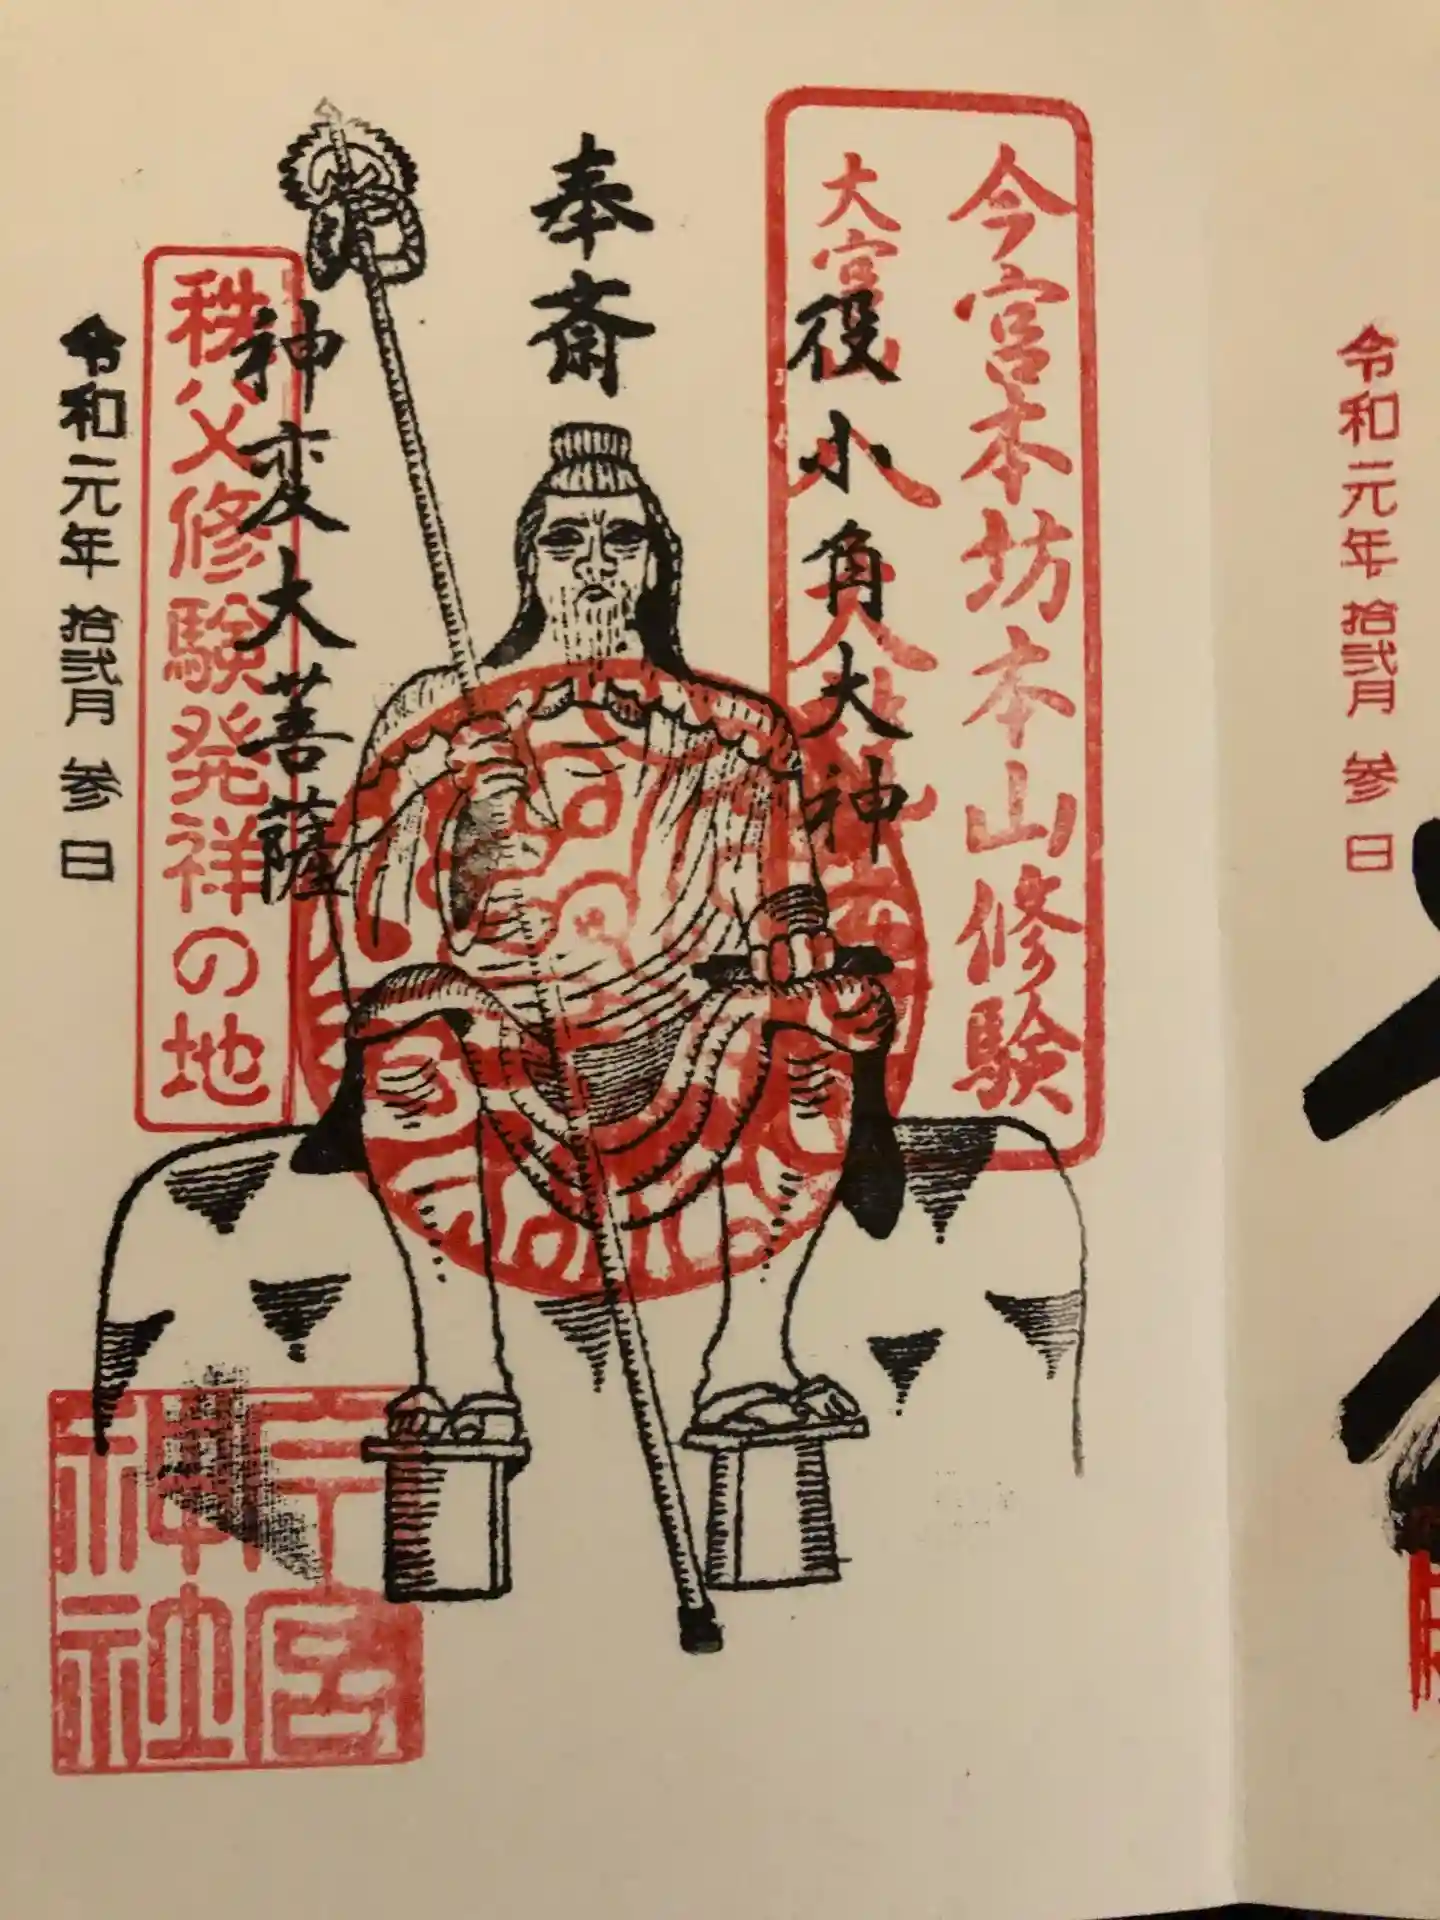 令和元年拾弐月参日
今宮本坊本山修験
大宮山八大龍
役小角大神
奉斎
神変大菩薩
秩父修験発祥の地
令和元年拾弐月参日
今宮神社